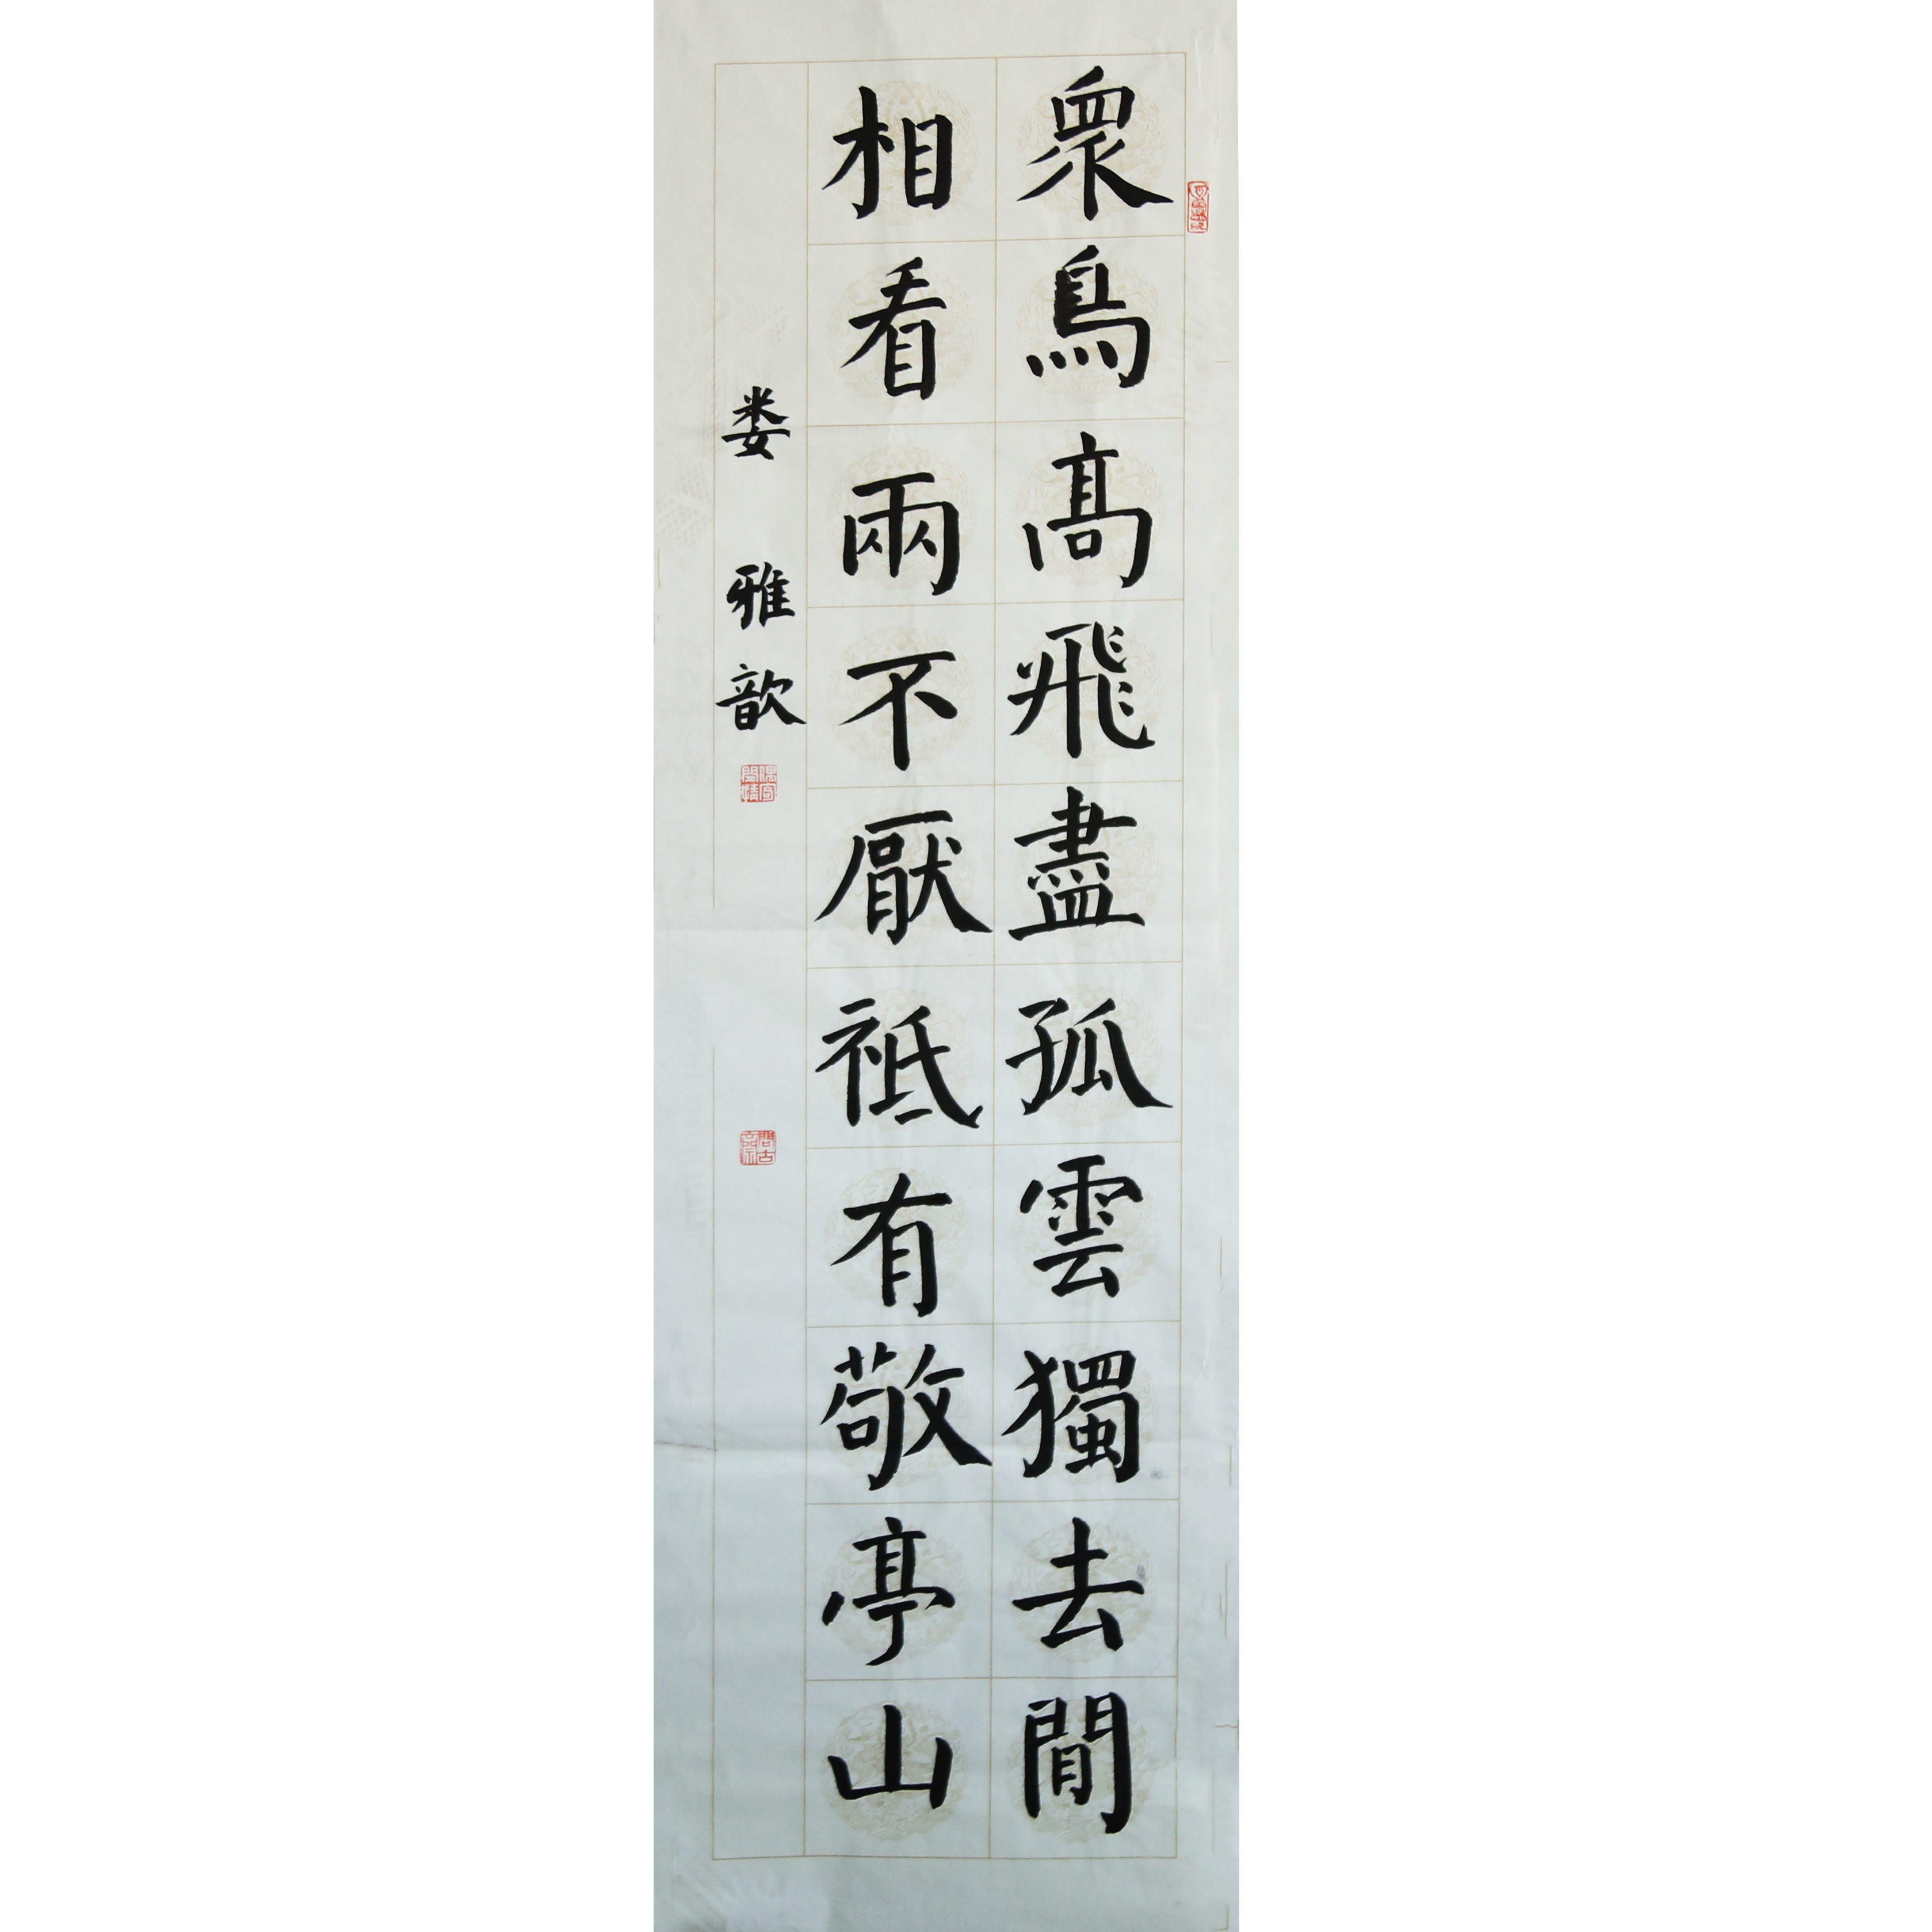 眾鳥高飛盡孤雲獨去閒
相看兩不厭祗有敬亭山
娄雅歆